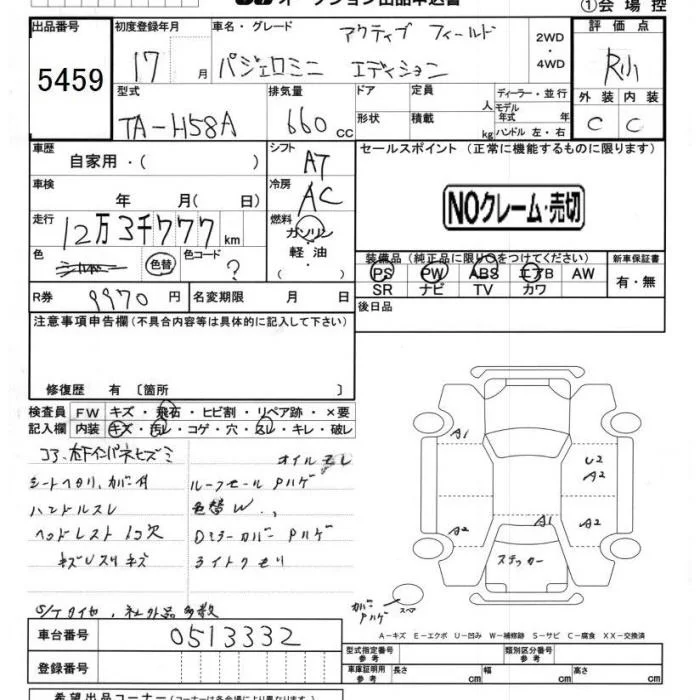 オークション出品申込書
①会場控
出品番号
5459
初度登録年月
17 月
車名・グレード
アクティブ フィールド
パジェロミニ エディション
2WD
・
4WD
評価点
R小
外装 内装
C C
型式
TA-H58A
排気量
660 cc
ドア
定員 人
形状
積載 kg
ディーラー・並行
モデル年式 年
ハンドル 左・右
車歴
自家用・( )
シフト
AT
車検
年 月( 日)
冷房
AC
走行
12万3千777 km
燃料
ガソリン
・
軽油
・
( )
色
色替
色コード
?
R券 9970 円
名変期限 月 日
セールスポイント (正常に機能するものに限ります)
NOクレーム・売切
装備品 (純正品に限り○をつけてください)
PS PW ABS エアB AW
SR ナビ TV カワ
新車保証書
有・無
後日品
注意事項申告欄(不具合内容等は具体的に記入して下さい)
修復歴 有 〔箇所 〕
検査員記入欄
FW キズ・飛石・ヒビ割・リペア跡・×要
内装 キズ・汚レ・コゲ・穴・スレ・キレ・破レ
コアS左下インパネヒズミ
オイルモレ
シートヘタリ、カバー付
ルーフモール Pハゲ
ハンドルスレ
色替W、、
ヘッドレスト 1コ欠
Dミラーカバー Pハゲ
キズUスリキズ
ライトクモリ
S/Tタイヤ、社外品多数
A1
U2
A2
A2
A1
A2
ステッカー
カバー
Pハゲ
スペア
A-キズ E-エクボ U-凹み W-補修跡 S-サビ C-腐食 XX-交換済
車台番号
0513332
登録番号
型式指定番号
参考
類別区分番号
参考
車庫証明用
参考
長さ 幅 高さ
希望出品コーナー(コーナーは各会場により異なります)